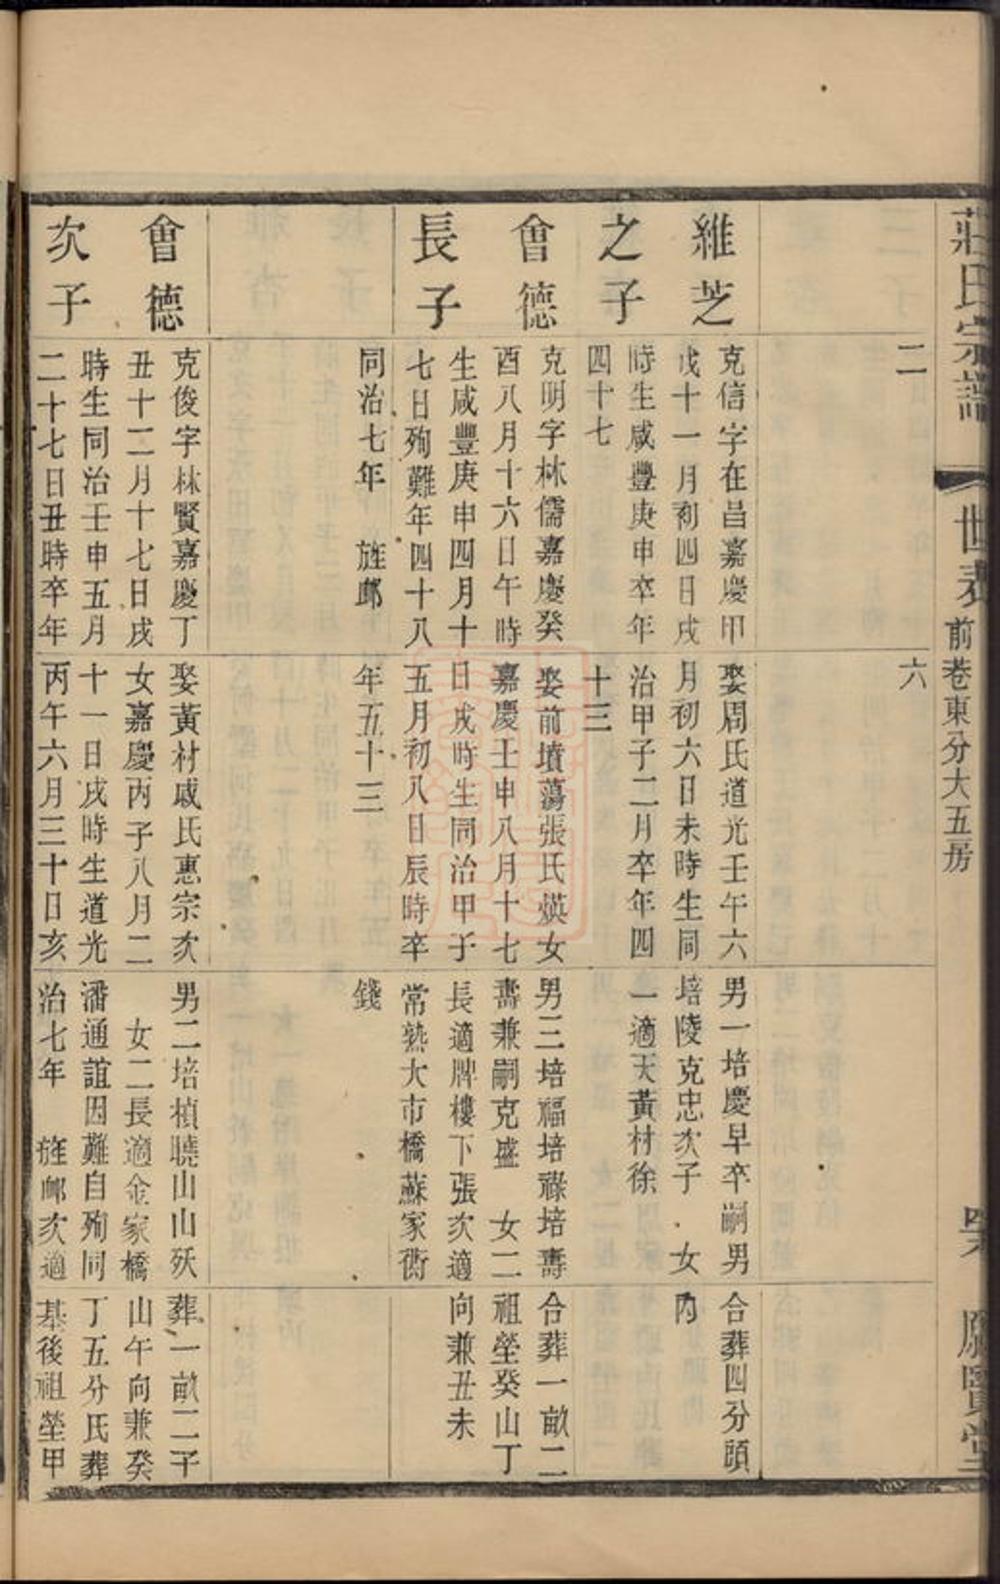 莊氏宗譜
世表
前巷東分大五房
二
六
維芝
之子
克信字在昌嘉慶甲
戌十一月初四日戌
時生咸豐庚申卒年
四十七
娶周氏道光壬午六
月初六日未時生同
治甲子二月卒年四
十三
男一培慶早卒嗣男
培陵克忠次子 女
一適天黃材徐
合葬四分頭
內
會德
長子
克明字林儒嘉慶癸
酉八月十六日午時
生咸豐庚申四月十
七日殉難年四十八
同治七年 旌䘏
娶前墳蕩張氏煐女
嘉慶壬申八月十七
日戌時生同治甲子
五月初八日辰時卒
年五十三
男三培福培祿培壽
壽兼嗣克盛 女二
長適牌樓下張次適
常熟大市橋蘇家衖
錢
合葬一畝二
祖塋癸山丁
向兼丑未
會德
次子
克俊字林賢嘉慶丁
丑十二月十七日戌
時生同治壬申五月
二十七日丑時卒年
娶黃材戚氏惠宗次
女嘉慶丙子八月二
十一日戌時生道光
丙午六月三十日亥
男二培楨曉山山殀
女二長適金家橋
潘通誼因難自殉同
治七年 旌䘏次適
葬一畝二子
山午向兼癸
丁五分氏葬
基後祖塋甲